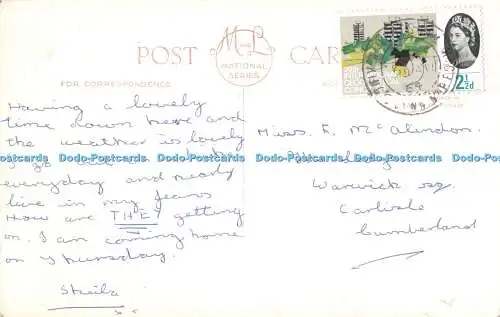 POST CARD
M and L
NATIONAL
SERIES
FOR CORRESPONDENCE
2½d
Having a lovely
time down here and
the weather is lovely
I go
everyday and nearly
live in my jeans
How are THEY getting
on. I am coming home
on Thursday.
Sheila
Miss. E. McAlindon.
Warwick Sq.
Carlisle
Cumberland
Dodo-Postcards Dodo-Postcards Dodo-Postcards Dodo-Postcards Dodo-Postcards